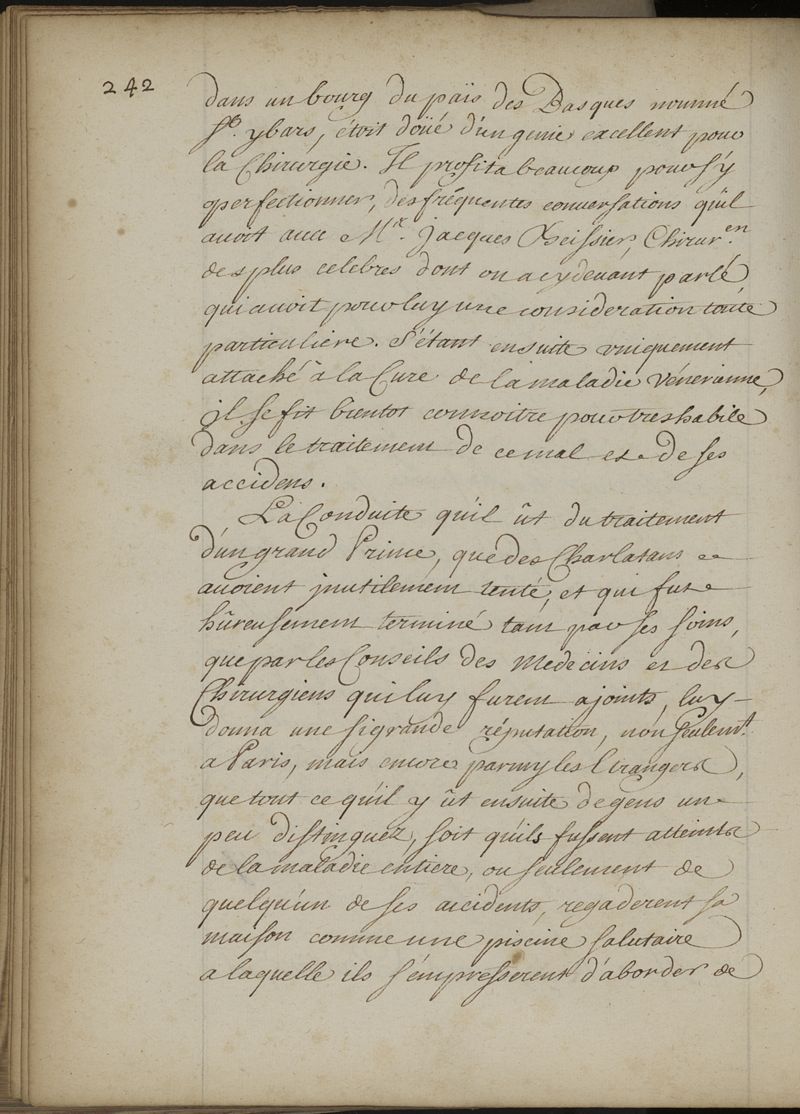 242
dans un bourg du païs des Basques nommé
St. ybars, étoit doüé d'un genie excellent pour
la Chirurgie. Il profita beaucoup pour s'y
perfectionner, des fréquentes conversations qu'il
avoit avec Mr. Jacques Beissier, Chirur.en
des plus celebres dont on a cydevant parlé
qui avoit pour luy une consideration toute
particuliere. S'étant ensuite vniquement
attaché à la Cure de la maladie vénerienne,
jl se fit bientot connoitre pour tres habile
dans le traitement de ce mal et de ses
accidens.
La Conduite qu'il ût du traitement
d'un grand Prince, que des Charlatans
avoient jnutilement tenté, et qui fut
hûreusement terminé tant par ses soins,
que par les Conseils des Medecins et des
Chirurgiens qui luy furent ajoints, luy
donna une si grande réputation, non seulemt.
a Paris, mais encore parmy les Etrangers,
que tout ce qu'il y ût ensuite de gens un
peu distinguez, soit qu'ils fussent atteints
de la maladie entiere, ou seulement de
quelqu'un de ses accidents, regaderent sa
maison comme une piscine salutaire
a laquelle ils s'empresserent d'aborder de